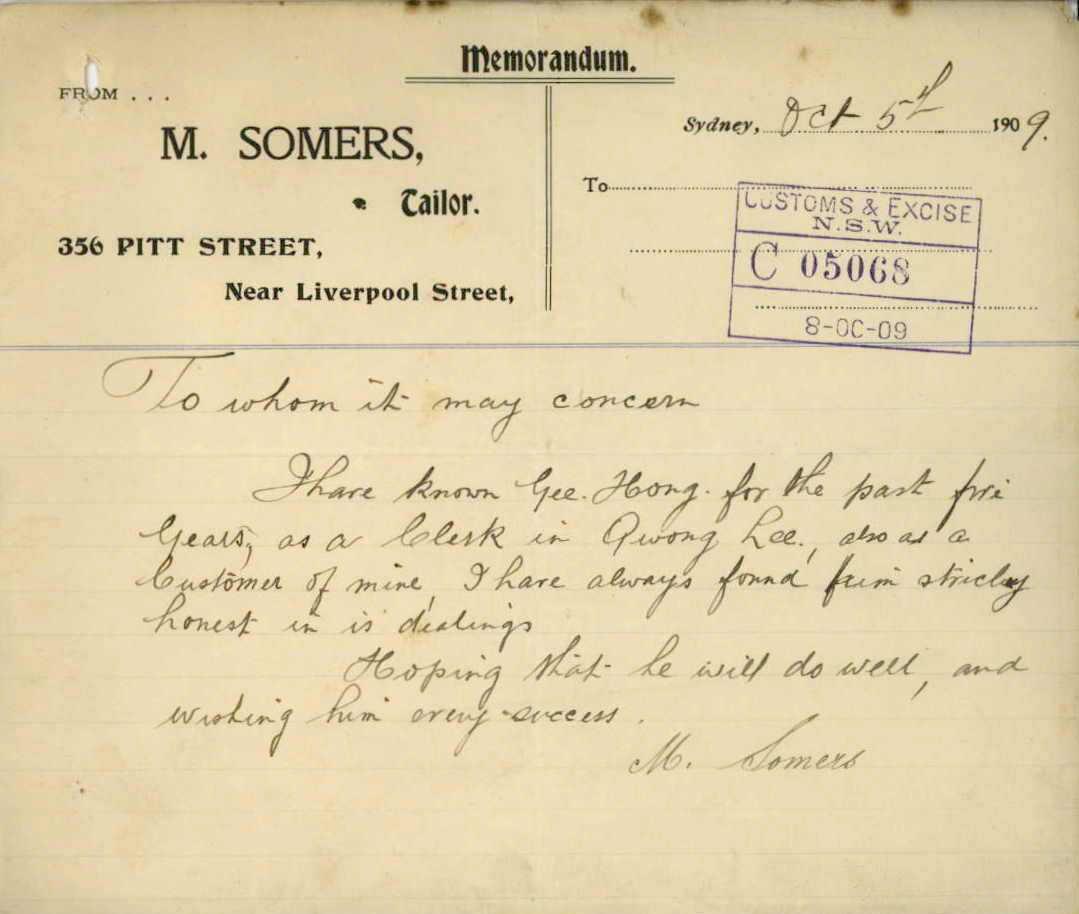 Memorandum.
FROM . . .
M. SOMERS,
Tailor.
356 PITT STREET,
Near Liverpool Street,
Sydney, Oct 5th 1909.
To
CUSTOMS & EXCISE
N.S.W.
C 05068
8-OC-09
To whom it may concern
I have known Gee. Hong. for the past five
Years, as a Clerk in Qwong Lee., also as a
Customer of mine, I have always found him stricley
honest in is dealings
Hoping that he will do well, and
wishing him every success.
M. Somers